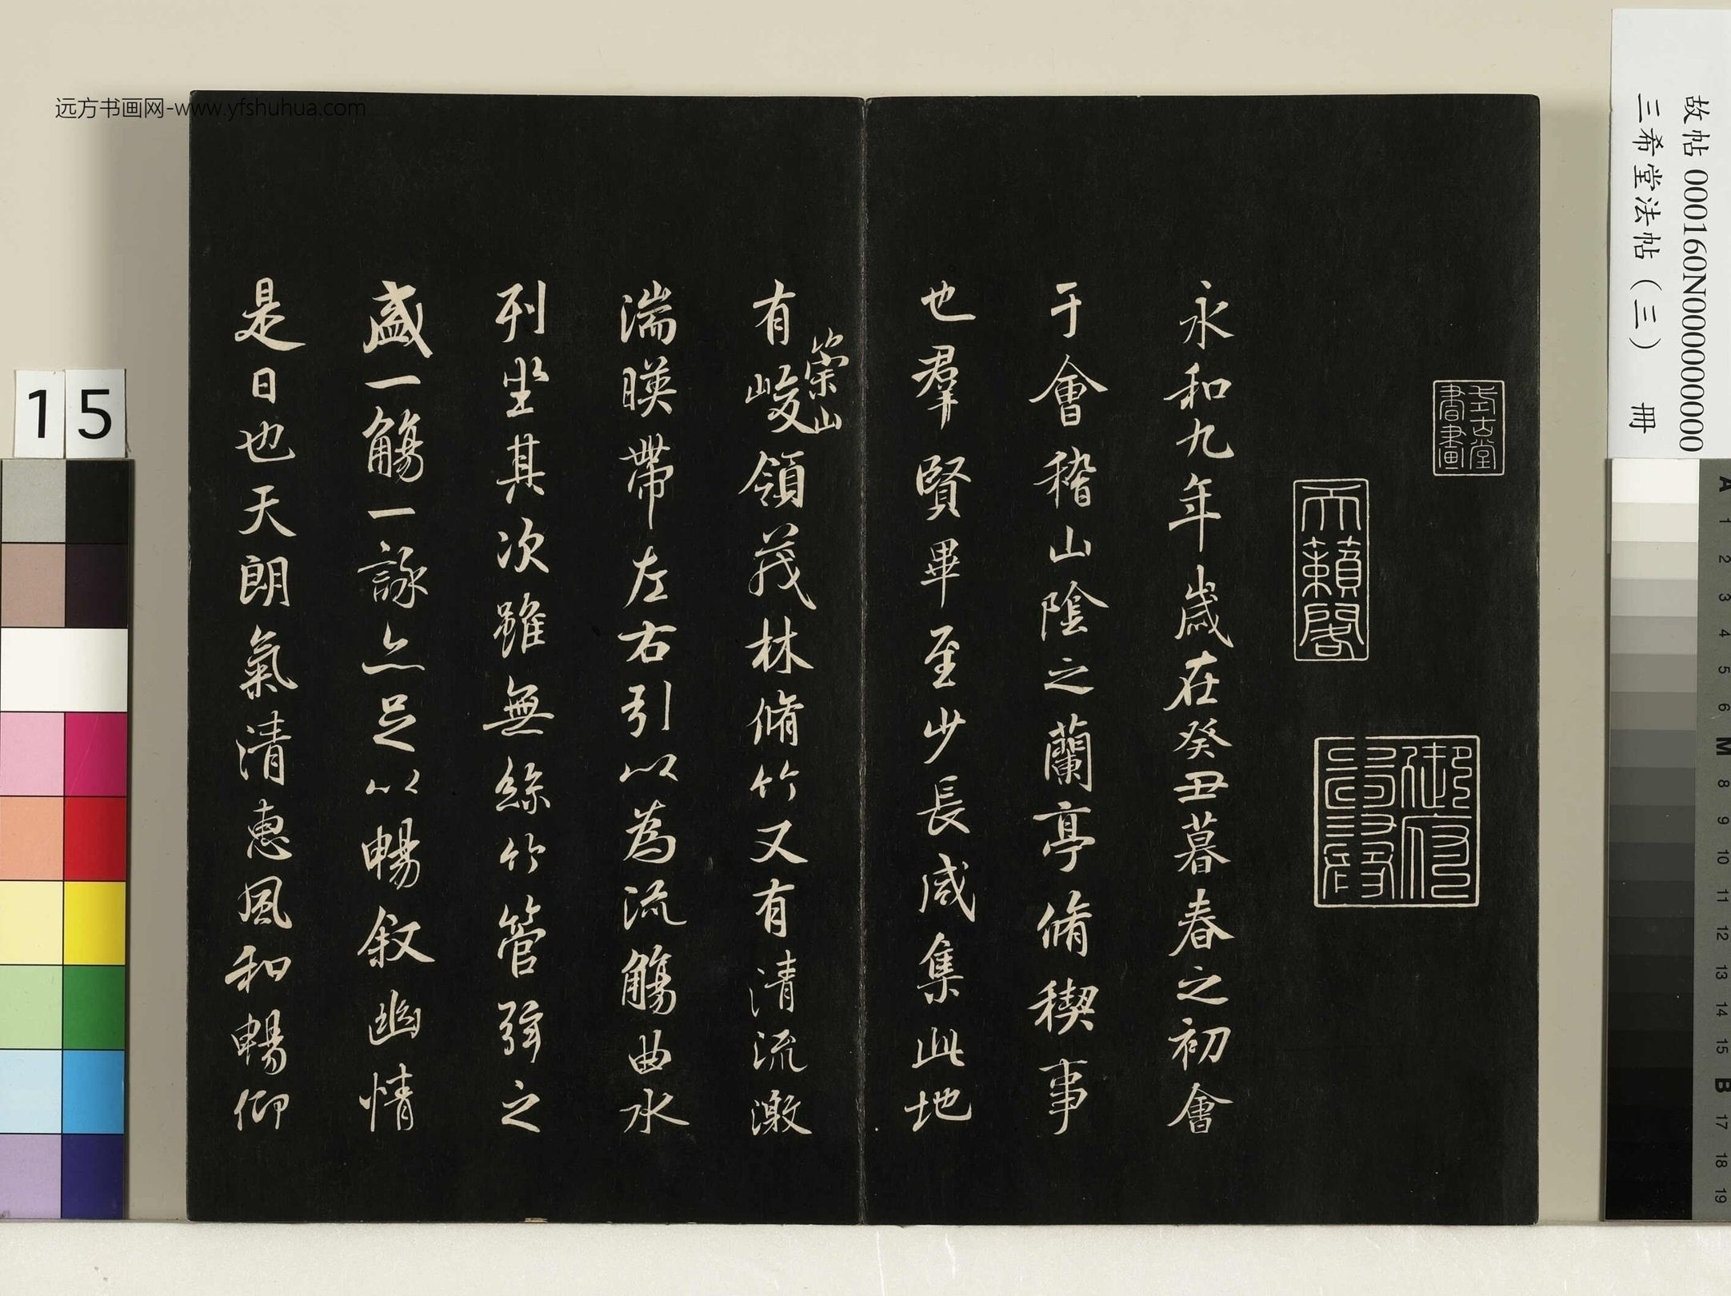 永和九年歲在癸丑暮春之初會
于會稽山陰之蘭亭脩稧事
也羣賢畢至少長咸集此地
有崇山峻領茂林脩竹又有清流激
湍暎帶左右引以為流觴曲水
列坐其次雖無絲竹管弦之
盛一觴一詠亦足以暢叙幽情
是日也天朗氣清惠風和暢仰
式古堂書畫
天籟閣
故帖 000160N000000000
三希堂法帖（三） 冊
远方书画网-www.yfshuhua.com
15
A
1
2
3
4
5
6
M
8
9
10
11
12
13
14
15
B
17
18
19